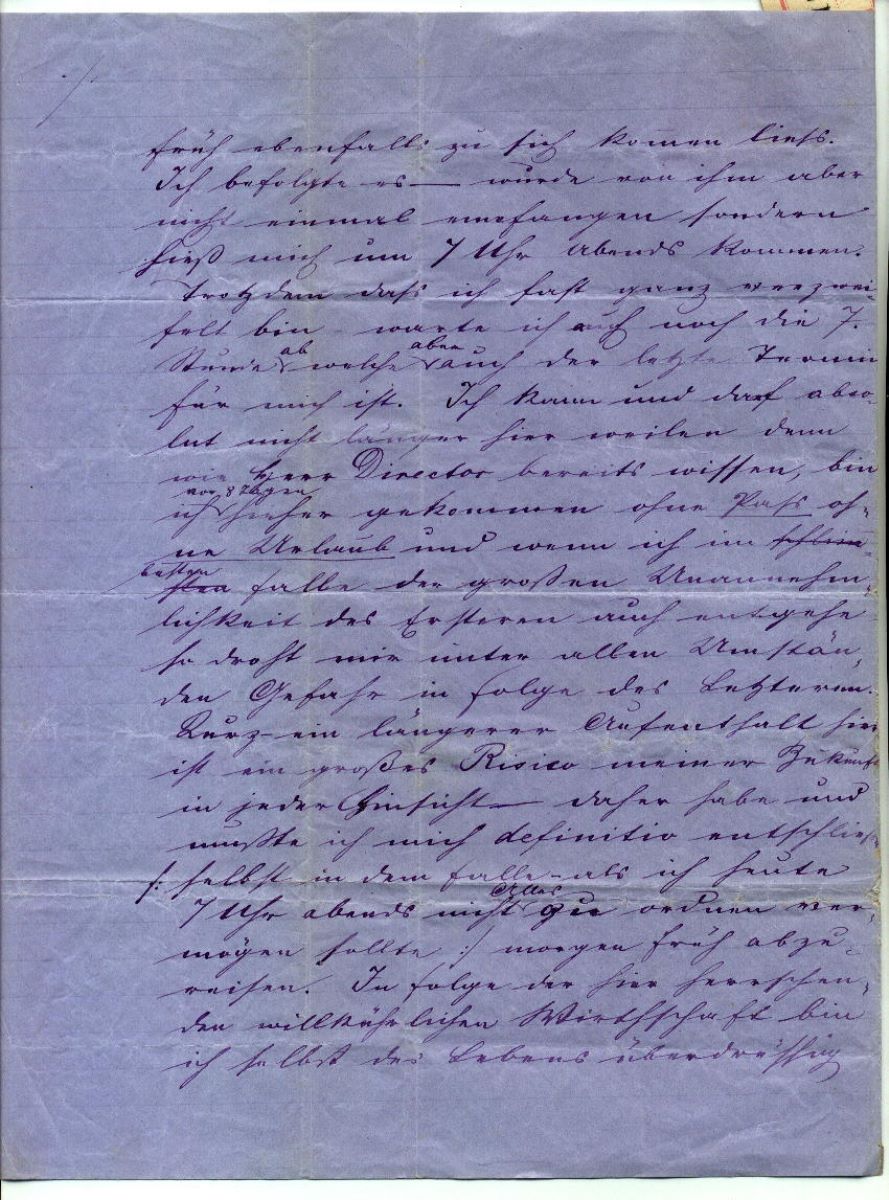 früh ebenfalls zu sich kommen liess.
Ich befolgte es — wurde von ihm aber
nicht einmal empfangen sondern
hieß mich um 7 Uhr Abends kommen.
Trotzdem dass ich fast ganz verzwei-
felt bin – warte ich auch noch die 7.
ab aber
Stunde welche auch der letzte Termin
für mich ist. Ich kann und darf abso-
lut nicht länger hier weilen denn
wie Herr Director bereits wissen, bin
vor 8 Tagen
ich hieher gekommen ohne Pass oh-
ne Urlaub und wenn ich im schlim-
besten
sten falle der großen Unannehm-
lichkeit des Ersteren auch entgehe
so droht mir unter allen Umstän-
den Gefahr in folge des Letzteren.
Kurz – ein längerer Aufenthalt hier
ist ein großes Risico meiner Zukunft
in jeder Hinsicht — daher habe und
mußte ich mich definitiv entschließen
/: selbst in dem falle – als ich heute
Alles
7 Uhr abends nicht zu ordnen ver-
mögen sollte :/ morgen früh abzu-
reisen. In folge der hier herrschen-
den willkührlichen Wirthschaft bin
ich selbst des Lebens überdrüssig